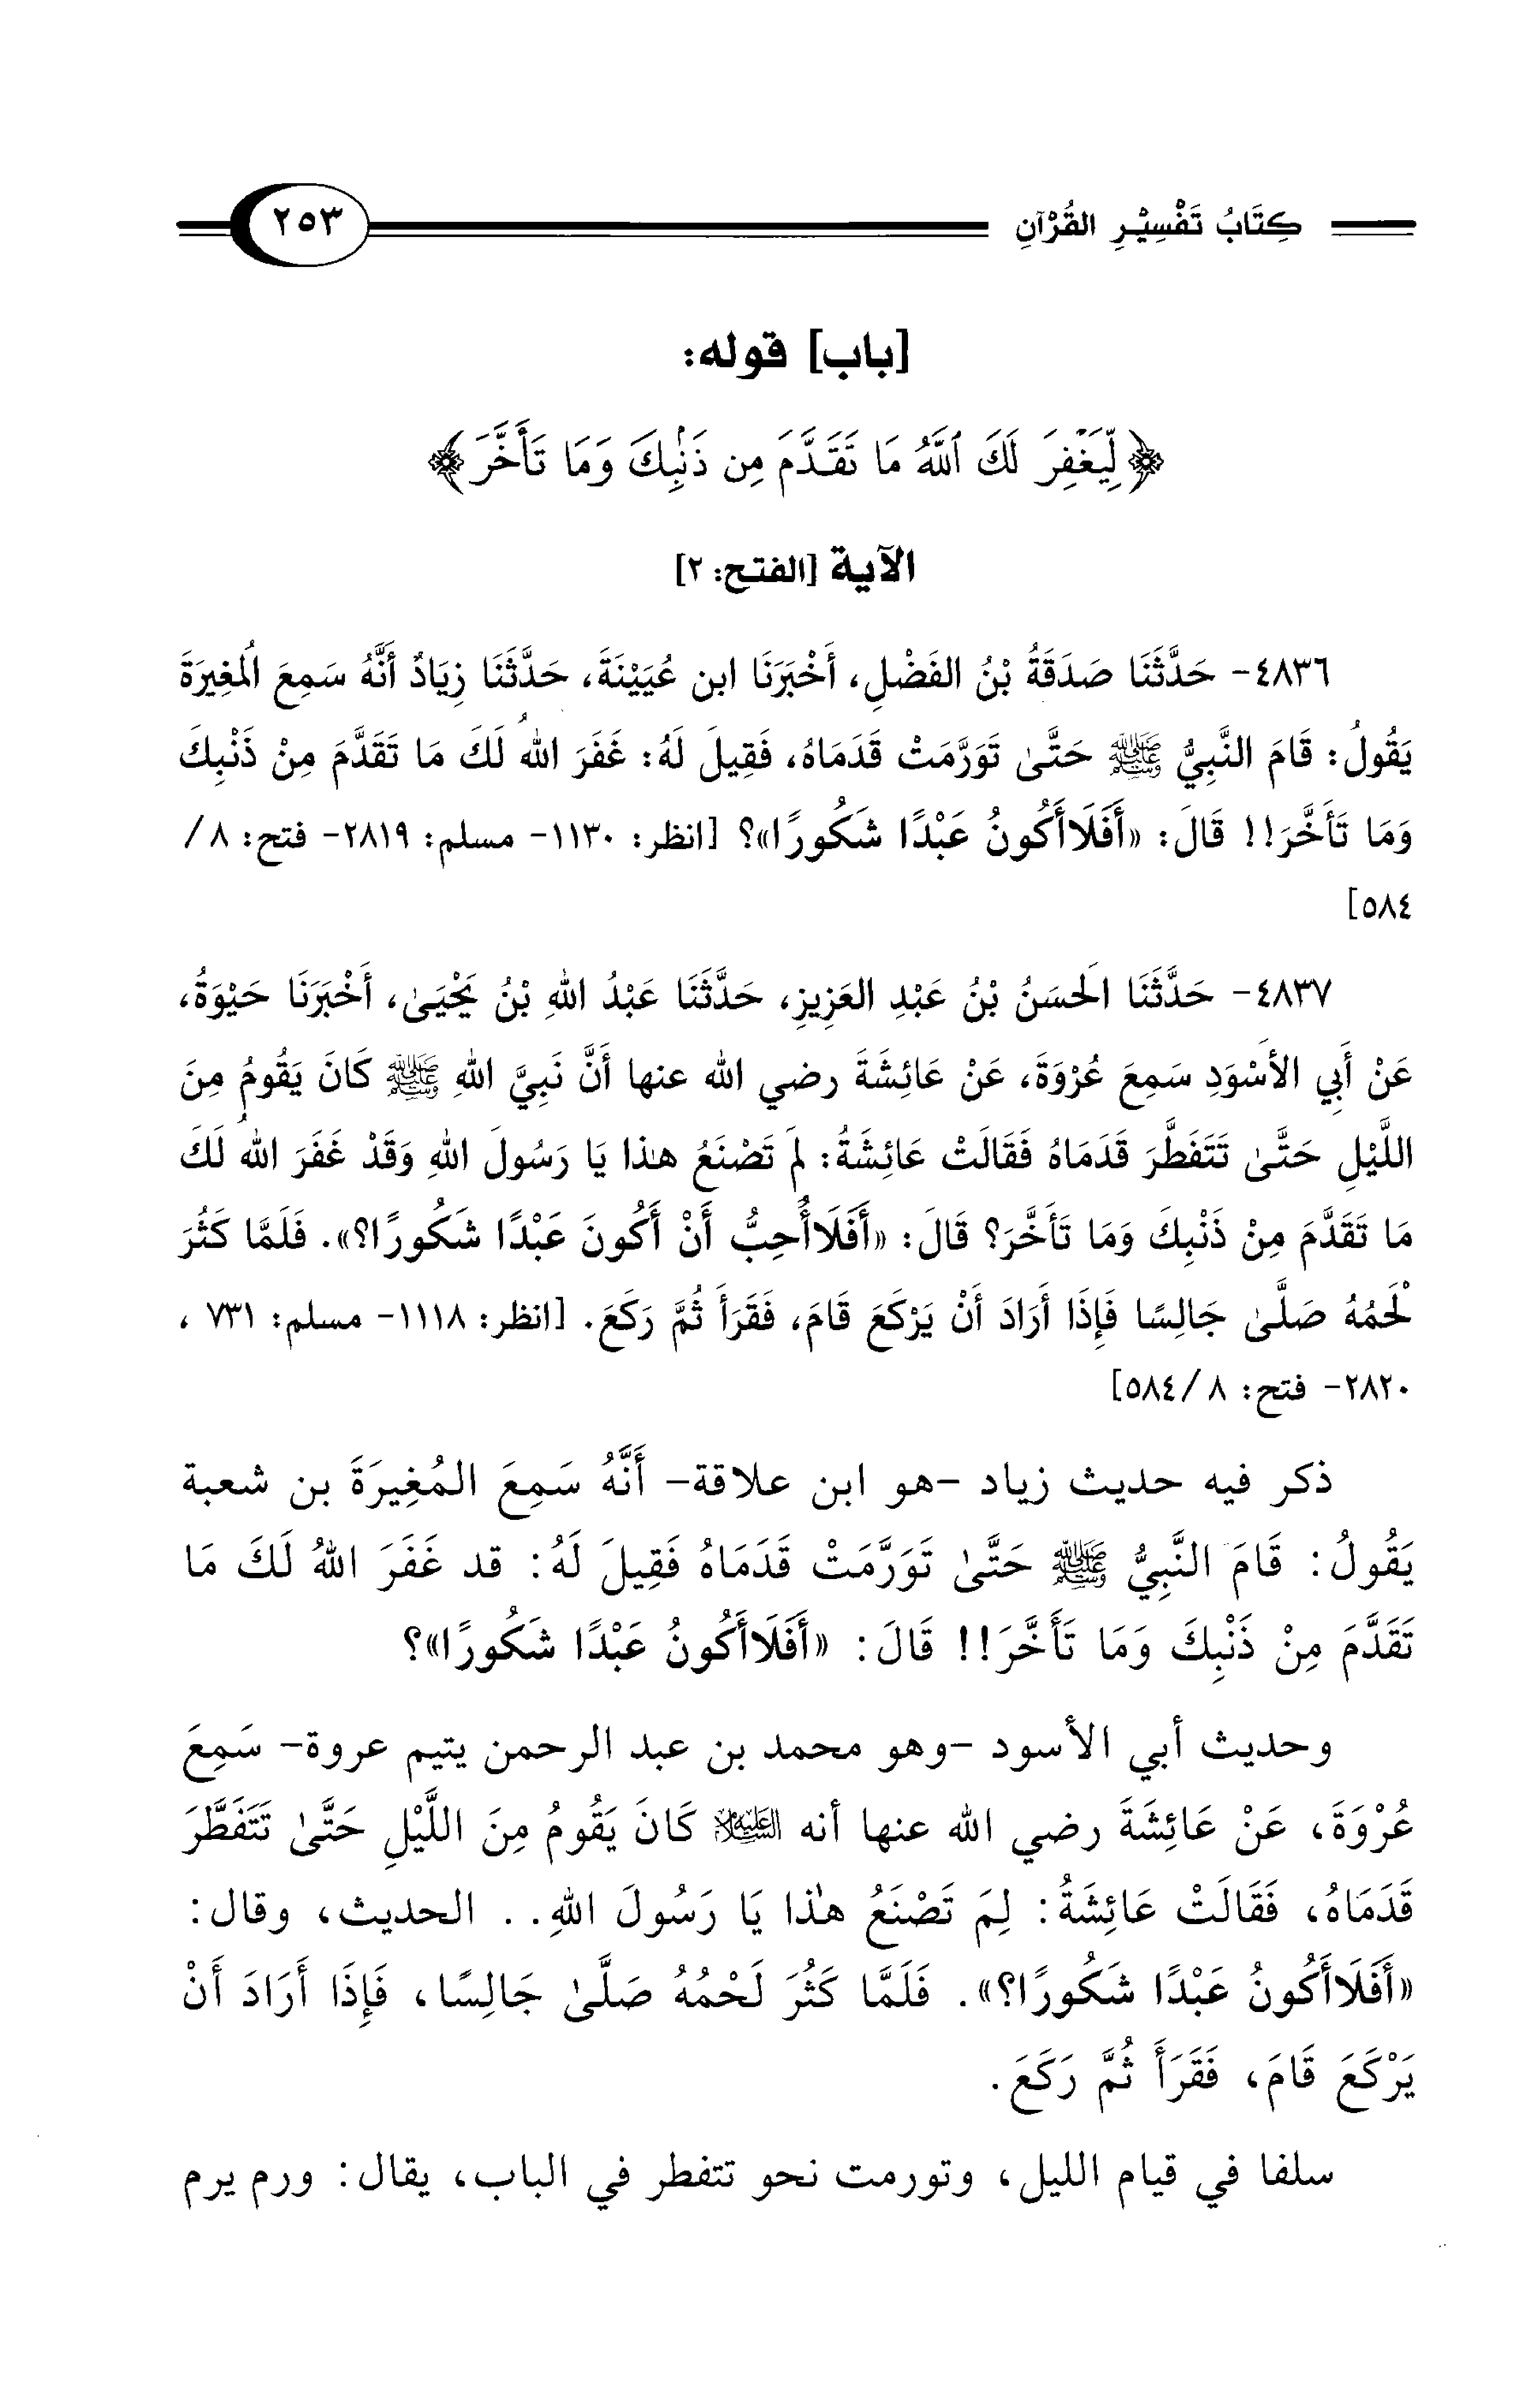 كِتَابُ تَفْسِيْرِ القُرْآنِ ٢٥٣
[باب] قوله:
﴿لِّيَغْفِرَ لَكَ ٱللَّهُ مَا تَقَدَّمَ مِن ذَنۢبِكَ وَمَا تَأَخَّرَ﴾
الآية [الفتح: ٢]
٤٨٣٦- حَدَّثَنَا صَدَقَةُ بْنُ الفَضْلِ، أَخْبَرَنَا ابن عُيَيْنَةَ، حَدَّثَنَا زِيَادٌ أَنَّهُ سَمِعَ المُغِيرَةَ
يَقُولُ: قَامَ النَّبِيُّ ﷺ حَتَّىٰ تَوَرَّمَتْ قَدَمَاهُ، فَقِيلَ لَهُ: غَفَرَ اللهُ لَكَ مَا تَقَدَّمَ مِنْ ذَنْبِكَ
وَمَا تَأَخَّرَ!! قَالَ: «أَفَلَاأَكُونُ عَبْدًا شَكُورًا»؟ [انظر: ١١٣٠- مسلم: ٢٨١٩- فتح: ٨/
٥٨٤]
٤٨٣٧- حَدَّثَنَا الَحسَنُ بْنُ عَبْدِ العَزِيزِ، حَدَّثَنَا عَبْدُ اللهِ بْنُ يَحْيَىٰ، أَخْبَرَنَا حَيْوَةُ،
عَنْ أَبِي الأَسْوَدِ سَمِعَ عُرْوَةَ، عَنْ عَائِشَةَ رضي الله عنها أَنَّ نَبِيَّ اللهِ ﷺ كَانَ يَقُومُ مِنَ
اللَّيْلِ حَتَّىٰ تَتَفَطَّرَ قَدَمَاهُ فَقَالَتْ عَائِشَةُ: لِمَ تَصْنَعُ هٰذا يَا رَسُولَ اللهِ وَقَدْ غَفَرَ اللهُ لَكَ
مَا تَقَدَّمَ مِنْ ذَنْبِكَ وَمَا تَأَخَّرَ؟ قَالَ: «أَفَلَاأُحِبُّ أَنْ أَكُونَ عَبْدًا شَكُورًا؟». فَلَمَّا كَثُرَ
لَحْمُهُ صَلَّىٰ جَالِسًا فَإِذَا أَرَادَ أَنْ يَرْكَعَ قَامَ، فَقَرَأَ ثُمَّ رَكَعَ. [انظر: ١١١٨- مسلم: ٧٣١ ،
٢٨٢٠- فتح: ٨/ ٥٨٤]
ذكر فيه حديث زياد -هو ابن علاقة- أَنَّهُ سَمِعَ المُغِيرَةَ بن شعبة
يَقُولُ: قَامَ النَّبِيُّ ﷺ حَتَّىٰ تَوَرَّمَتْ قَدَمَاهُ فَقِيلَ لَهُ: قد غَفَرَ اللهُ لَكَ مَا
تَقَدَّمَ مِنْ ذَنْبِكَ وَمَا تَأَخَّرَ!! قَالَ: «أَفَلَاأَكُونُ عَبْدًا شَكُورًا»؟
وحديث أبي الأسود -وهو محمد بن عبد الرحمن يتيم عروة- سَمِعَ
عُرْوَةَ، عَنْ عَائِشَةَ رضي الله عنها أنه عليه السلام كَانَ يَقُومُ مِنَ اللَّيْلِ حَتَّىٰ تَتَفَطَّرَ
قَدَمَاهُ، فَقَالَتْ عَائِشَةُ: لِمَ تَصْنَعُ هٰذا يَا رَسُولَ اللهِ.. الحديث، وقال:
«أَفَلَاأَكُونُ عَبْدًا شَكُورًا؟». فَلَمَّا كَثُرَ لَحْمُهُ صَلَّىٰ جَالِسًا، فَإِذَا أَرَادَ أَنْ
يَرْكَعَ قَامَ، فَقَرَأَ ثُمَّ رَكَعَ.
سلفا في قيام الليل، وتورمت نحو تتفطر في الباب، يقال: ورم يرم